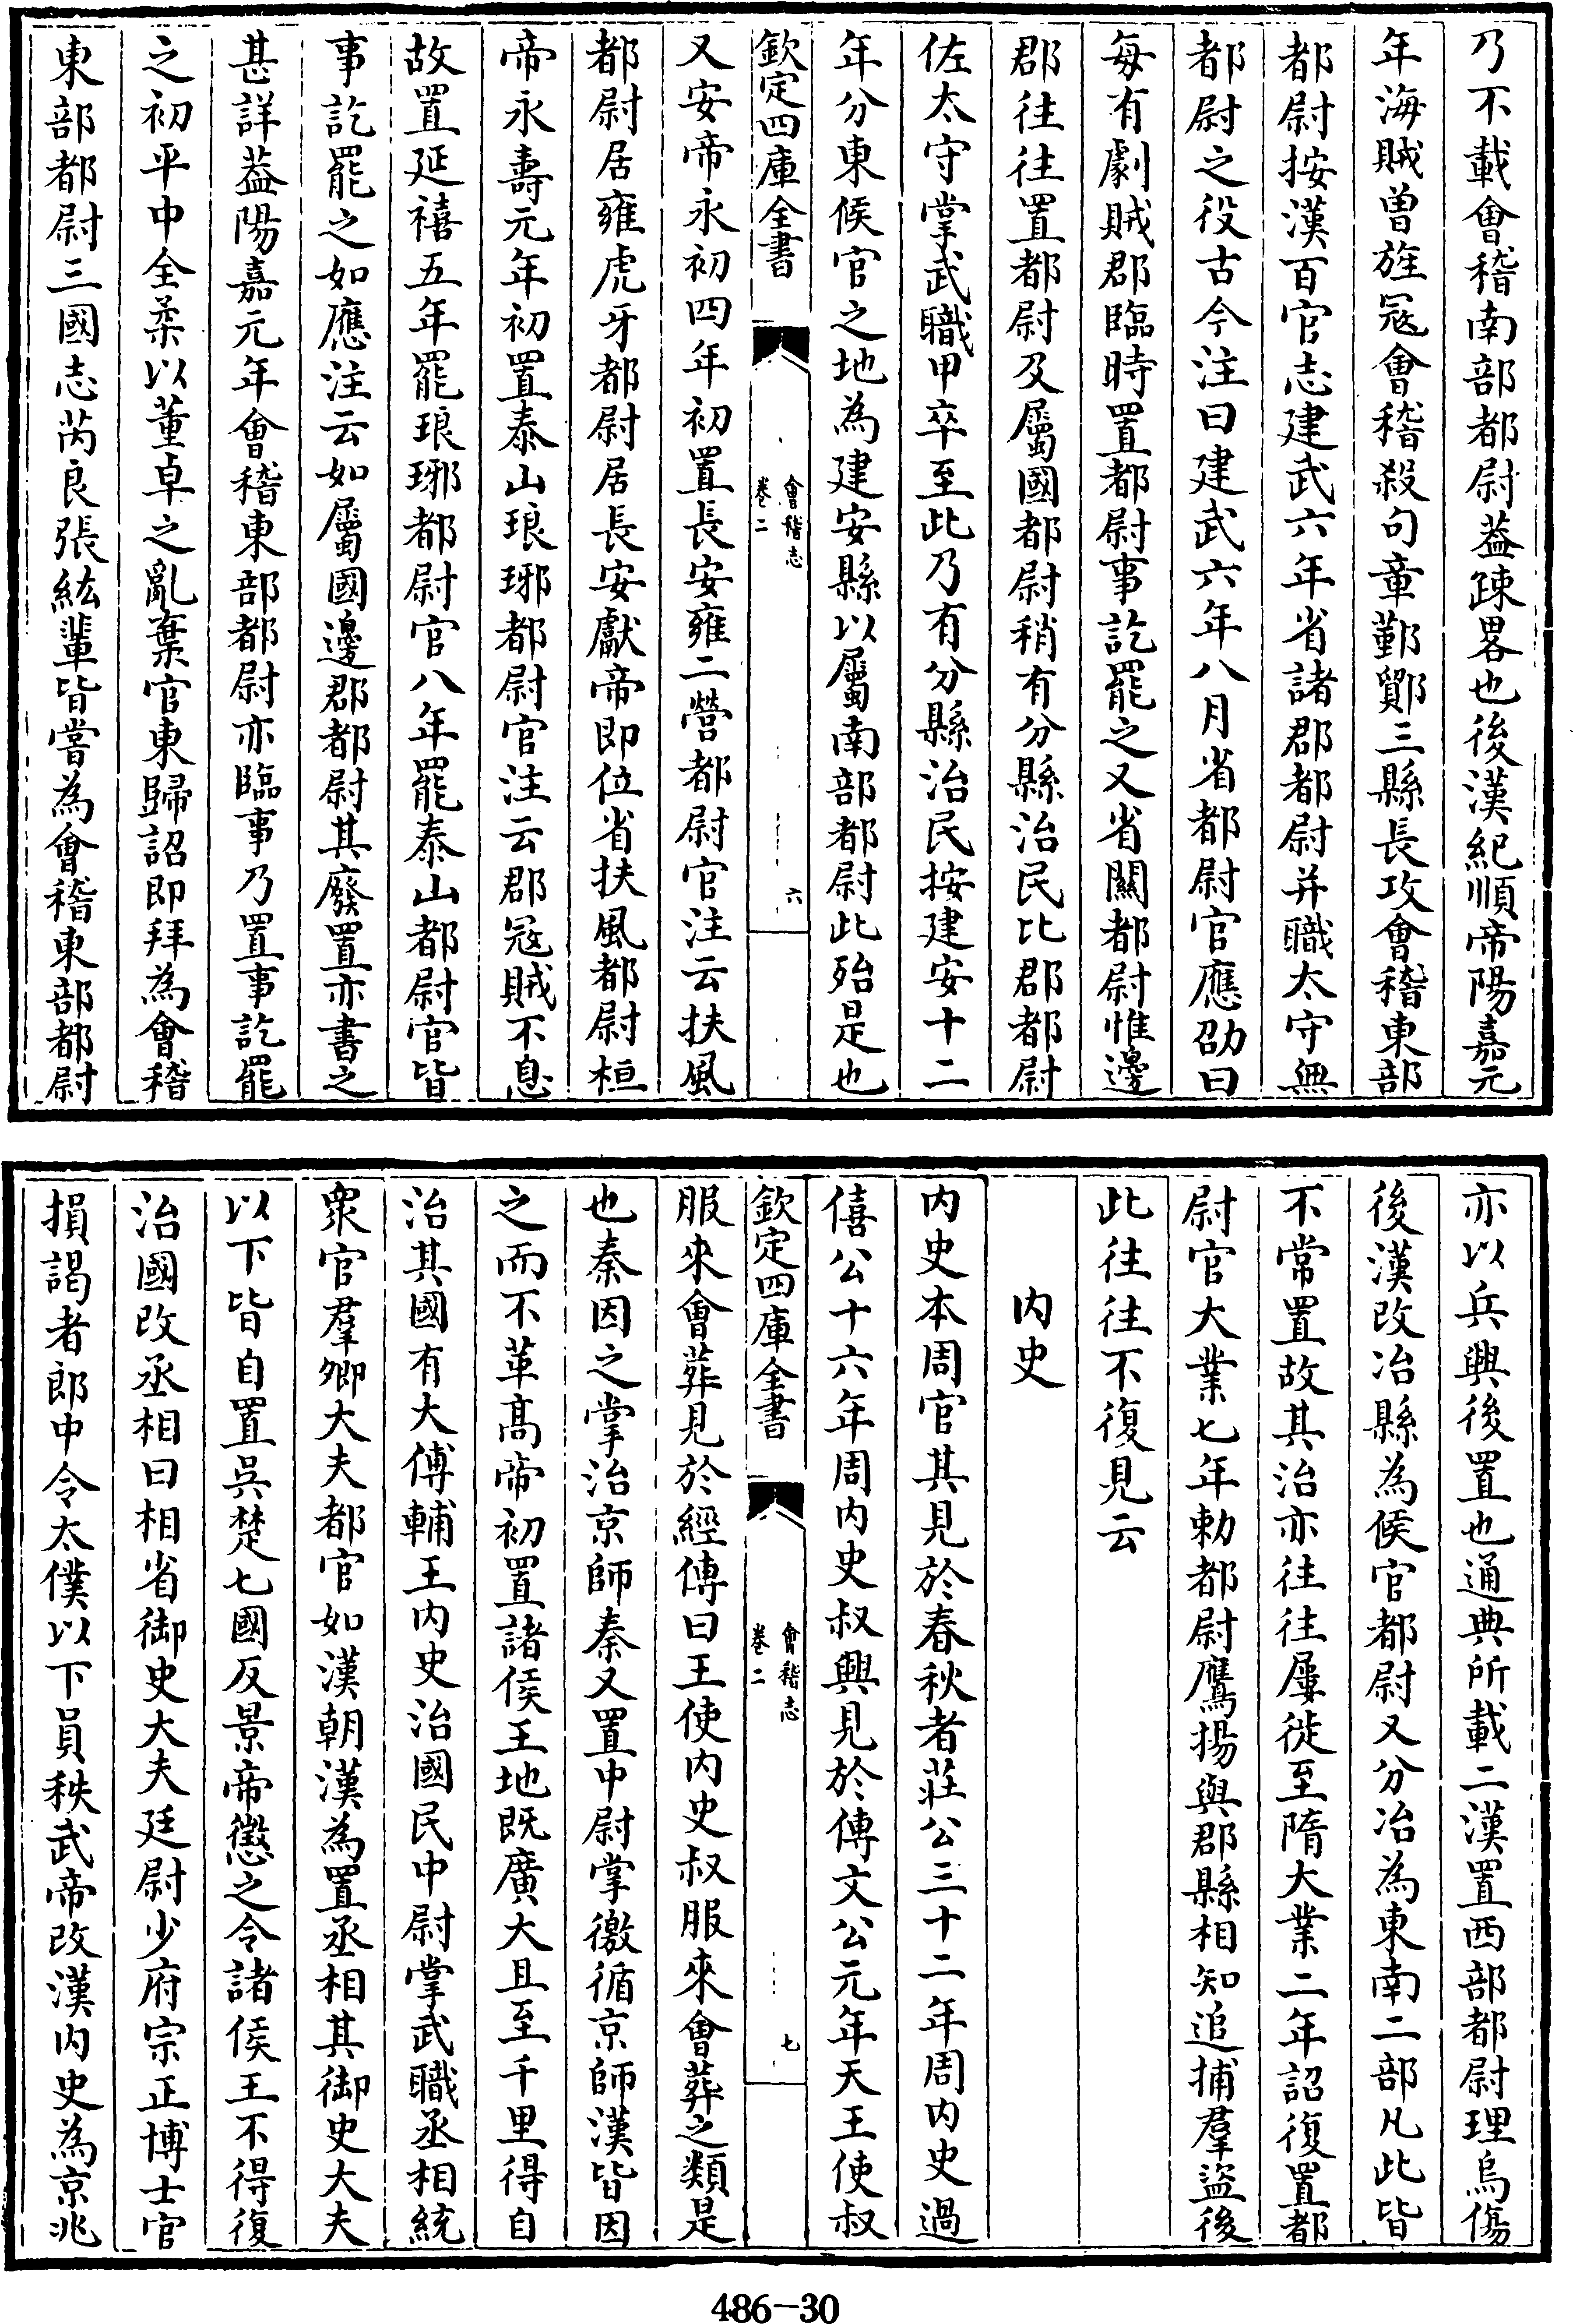 乃不載會稽南部都尉葢疎畧也後漢紀順帝陽嘉元
年海賊曽旌冦會稽殺句章鄞鄮三縣長攻會稽東部
都尉按漢百官志建武六年省諸郡都尉并職太守無
都尉之役古今注曰建武六年八月省都尉官應劭曰
每有劇賊郡臨時置都尉事訖罷之又省關都尉惟邊
郡往往置都尉及屬國都尉稍有分縣治民比郡都尉
佐太守掌武職甲卒至此乃有分縣治民按建安十二
年分東候官之地為建安縣以屬南部都尉此殆是也
欽定四庫全書
會稽志
卷二
六
又安帝永初四年初置長安雍二營都尉官注云扶風
都尉居雍虎牙都尉居長安獻帝即位省扶風都尉桓
帝永壽元年初置泰山琅琊都尉官注云郡冦賊不息
故置延禧五年罷琅琊都尉官八年罷泰山都尉官皆
事訖罷之如應注云如屬國邊郡都尉其廢置亦書之
甚詳葢陽嘉元年會稽東部都尉亦臨事乃置事訖罷
之初平中全柔以董卓之亂棄官東歸詔即拜為會稽
東部都尉三國志芮良張紘輩皆嘗為會稽東部都尉
亦以兵興後置也通典所載二漢置西部都尉理烏傷
後漢改冶縣為候官都尉又分冶為東南二部凡此皆
不常置故其治亦往往屢徙至隋大業二年詔復置都
尉官大業七年勅都尉鷹揚與郡縣相知追捕羣盜後
此往往不復見云
内史
内史本周官其見於春秋者莊公三十二年周内史過
僖公十六年周内史叔興見於傳文公元年天王使叔
欽定四庫全書
會稽志
卷二
七
服來會葬見於經傳曰王使内史叔服來會葬之類是
也秦因之掌治京師秦又置中尉掌徼循京師漢皆因
之而不革髙帝初置諸侯王地既廣大且至千里得自
治其國有大傅輔王内史治國民中尉掌武職丞相統
衆官羣卿大夫都官如漢朝漢為置丞相其御史大夫
以下皆自置吳楚七國反景帝懲之令諸侯王不得復
治國改丞相曰相省御史大夫廷尉少府宗正博士官
損謁者郎中令太僕以下員秩武帝改漢内史為京兆
486-30